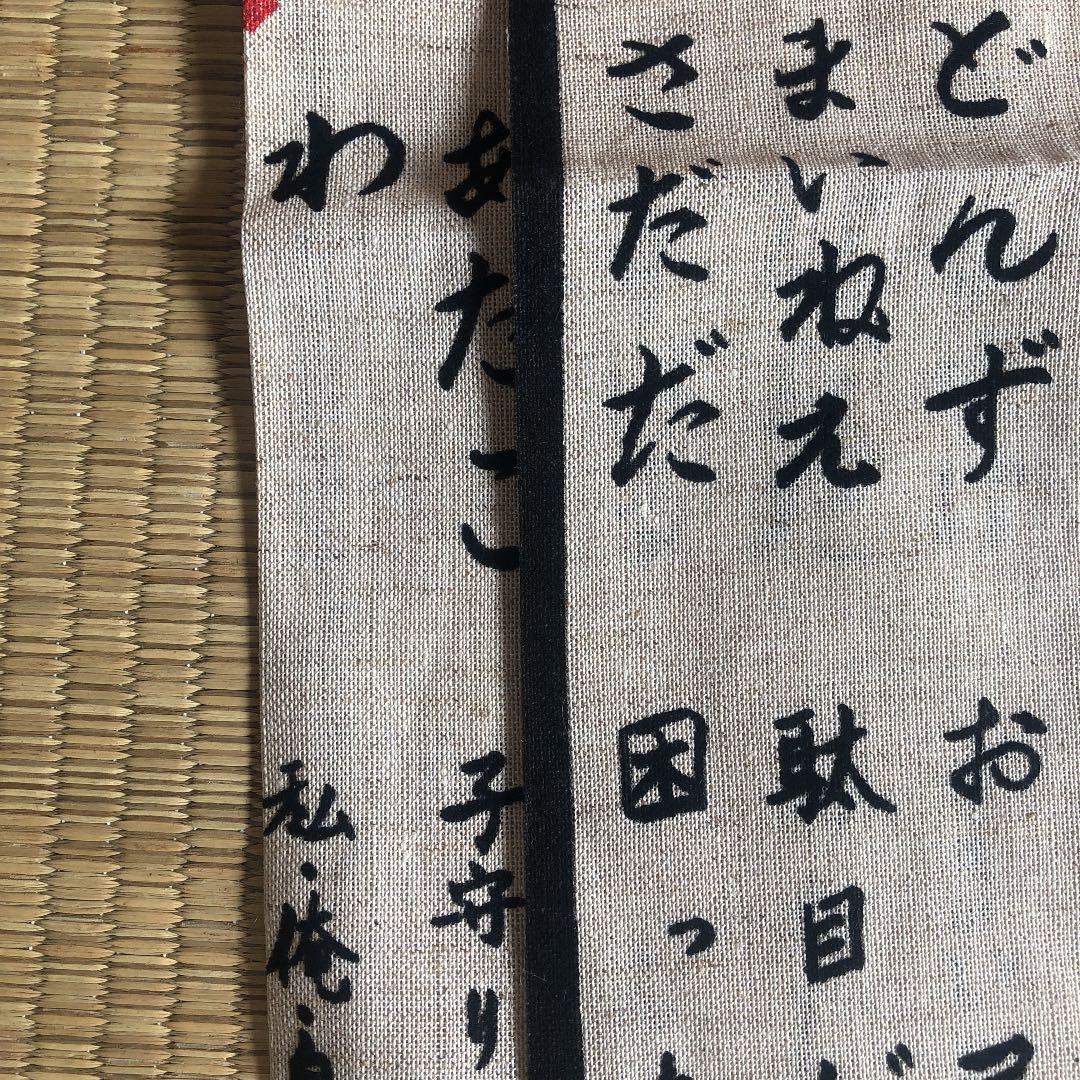 どんず お
まいねえ 駄目だ
さだだ 困っ
あたこ 子守り
わ 私・俺・